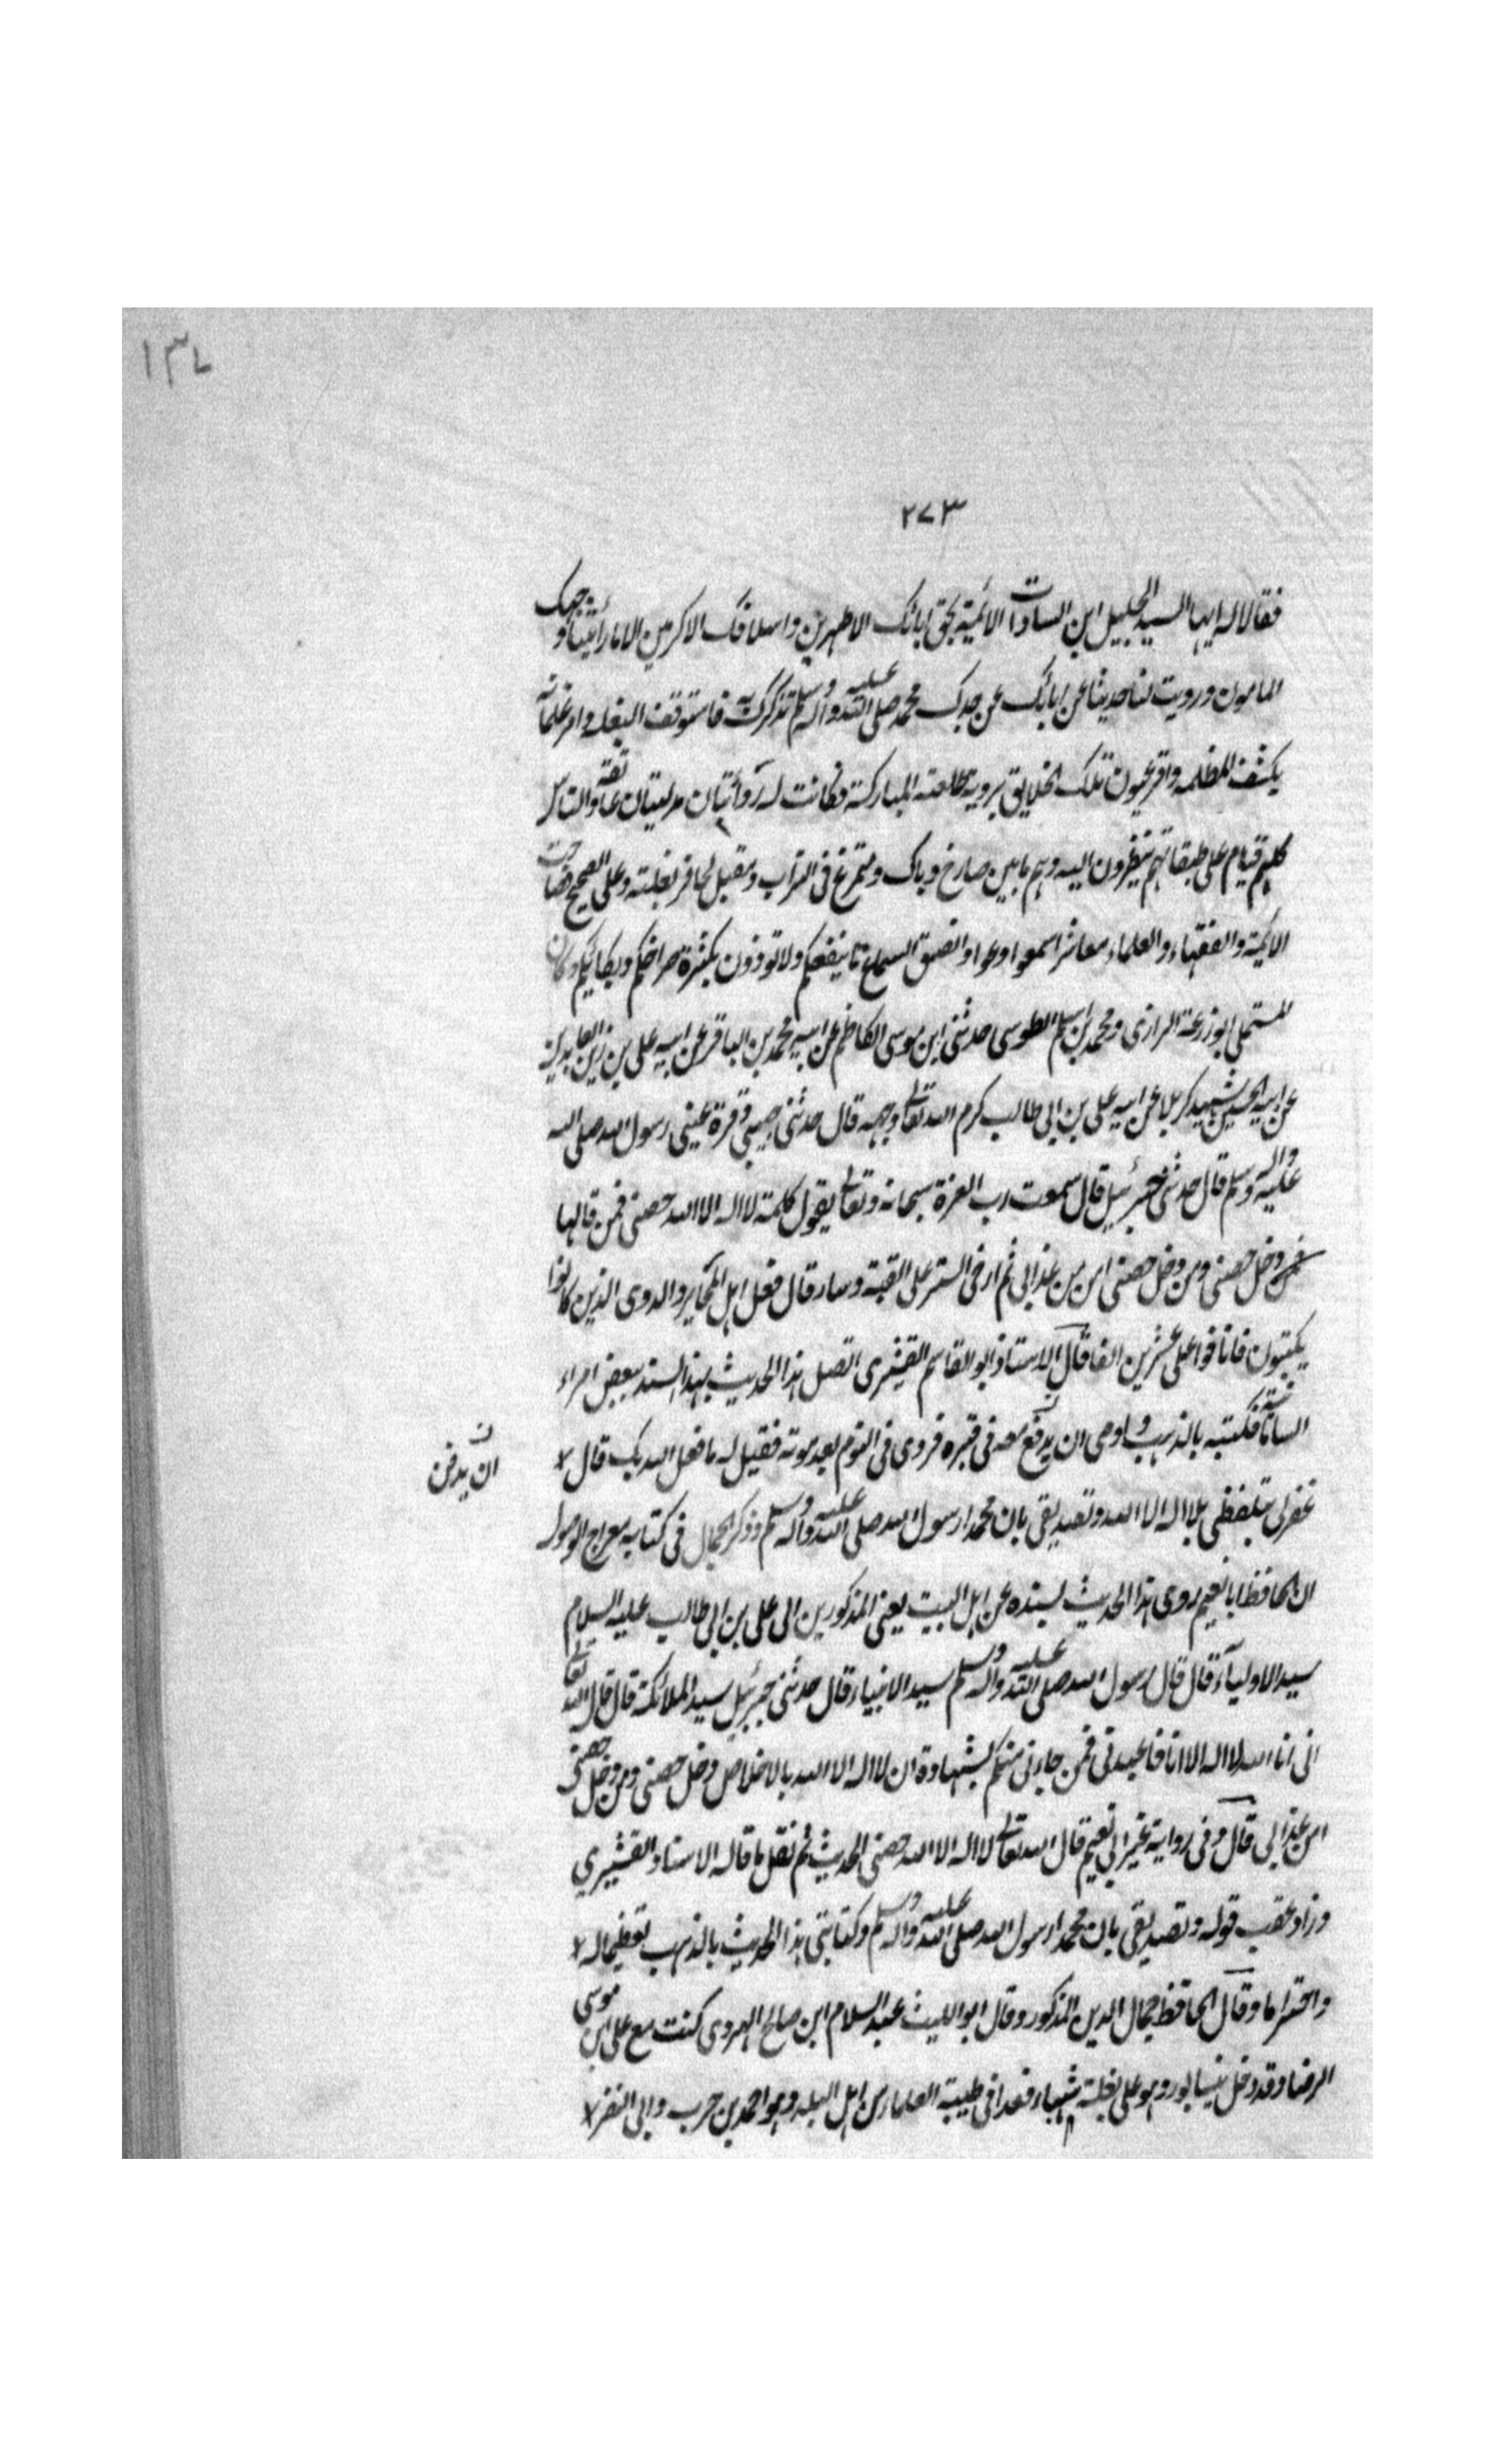 ١٣٧
٢٧٣
فقالا له ايها السيد الجليل ابن السادات الائمية بحق ابائك الاطهرين واسلافك الاكرمين الا ما رأيتنا وجهك
المامون ورويت لنا حديثا عن ابائك عن جدك محمد صلى الله عليه واله وسلم نذكرك به فاستوقف البغلة وامر غلمانه
بكشف المظلمه واقر عيون تلك الخلايق بروية طلعته المباركة فكانت له ذوأبتان مدليتان على عاتقه والناس
كلهم قيام على طبقاتهم ينظرون اليه وهم ما بين صارخ وباك ومتمرغ فى التراب ومقبل لحافر بغلته وعلى الضجيج فصاحت
الائمية والفقهاء والعلماء معاشر اسمعوا وعوا وانصتوا لسماع ما ينفعكم ولا توذون بكثرة صراخكم وبكائكم وكان
المستملى ابو زرعة الرازى ومحمد بن اسلم الطوسى حدثنى ابن موسى الكاظم عن ابيه محمد بن الباقر عن ابيه على بن زين العابدين
عن ابيه الحسين شهيد كربلا عن ابيه على بن ابى طالب كرم الله تعالى وجهه قال حدثنى حبيبى وقرة عينى رسول الله صلى الله
عليه واله وسلم قال حدثنى جبرئيل قال سمعت رب العزة سبحانه وتعالى يقول كلمة لا اله الا الله حصنى فمن قالها
دخل حصنى ومن دخل حصنى امن من عذابى ثم ارخى الستر على القبة وسار قال فعل اهل المحابر والدوى الذين كانوا
يكتبون فانافوا على عشرين الفا قال الاستاذ ابو القاسم القشيرى اتصل هذا الحديث بهذا السند ببعض امراء
السامانية فكتبه بالذهب واوصى ان يدفع معه فى قبره فروى فى النوم بعد موته فقيل له ما فعل الله بك قال
ان يدفن ن
غفر لى بتلفظى بلا اله الا الله وتصديقى بان محمدا رسول الله صلى الله عليه واله وسلم وذكر الجمال فى كتابه معراج الوصول
ان الحافظ ابا نعيم روى هذا الحديث بسنده عن اهل البيت يعنى المذكورين الى على بن ابى طالب عليه السلام
سيد الاولياء قال قال رسول الله صلى الله عليه واله وسلم سيد الانبياء قال حدثنى جبرئيل سيد الملائكة قال قال الله تعالى
انى انا الله لا اله الا انا فاعبدنى فمن جاءنى منكم بشهادة ان لا اله الا الله بالاخلاص دخل حصنى ومن دخل حصنى
امن عذابى قال وفى رواية غير ابى نعيم قال الله تعالى لا اله الا الله حصنى الحديث ثم نقل ما قاله الاستاد القشيري
وزاد عقب قوله وتصديقى بان محمدا رسول الله صلى الله عليه واله وسلم وكتابتى هذا الحديث بالذهب تعظيما له
واحتراما وقال الحافظ جمال الدين المذكور وقال ابو الليث عبد السلام ابن صالح الهروى كنت مع على ابن موسى
الرضا وقد دخل نيسابور وهو على بغلة شهباء فغدا فى طيبة العلما من اهل البلد وهو احمد بن حرب وابى النضر